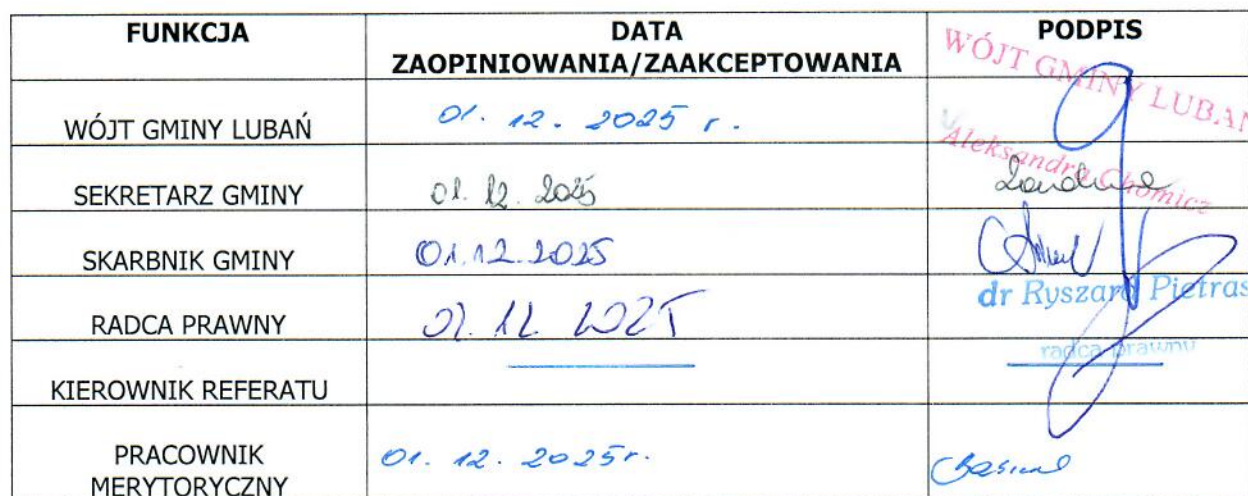 FUNKCJA
DATA ZAOPINIOWANIA/ZAAKCEPTOWANIA
PODPIS
WÓJT GMINY LUBAŃ
01. 12. 2025 r.
WÓJT GMINY LUBAŃ
Aleksandra Chomicz
SEKRETARZ GMINY
01. 12. 2025
SKARBNIK GMINY
01.12.2025
RADCA PRAWNY
12 2025
dr Ryszard Pietras
radca prawny
KIEROWNIK REFERATU
PRACOWNIK
MERYTORYCZNY
01. 12. 2025r.